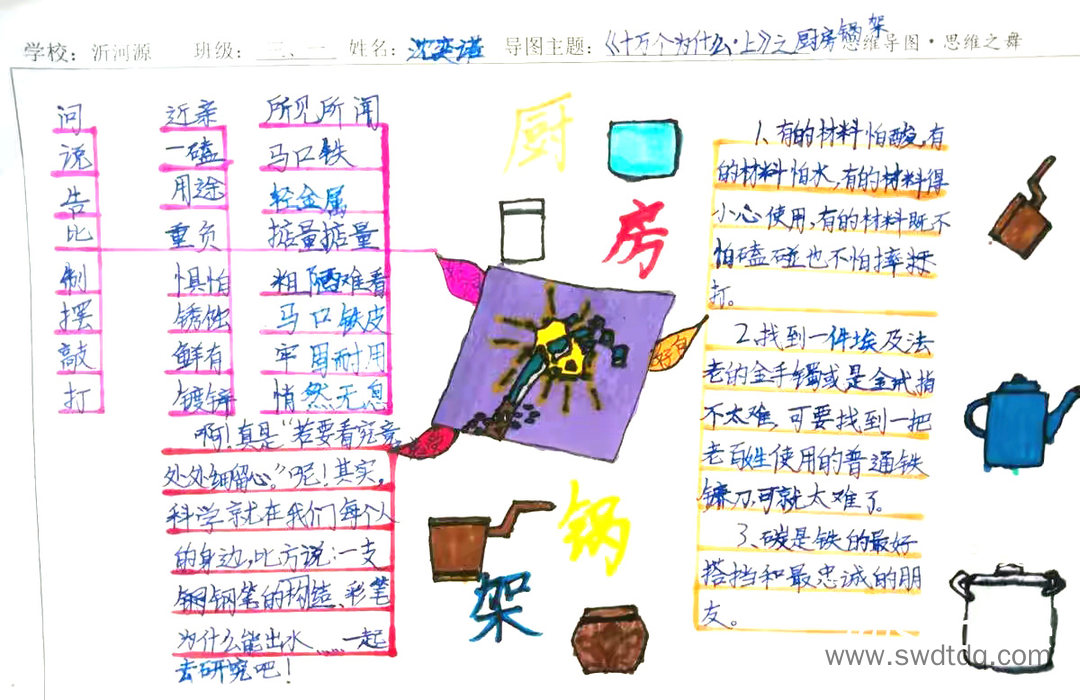 学校：沂河源 班级：三、一 姓名：沈奕诺 导图主题：《十万个为什么·上》之厨房锅架 思维导图·思维之舞
问 近亲 所见所闻
说 一磕 马口铁
告 用途 轻金属
比 重负 掂量掂量
制 惧怕 粗陋难看
摆 锈蚀 马口铁皮
敲 鲜有 牢固耐用
打 镀锌 悄然无息
啊！真是“若要看究竟，
处处细留心。”呢！其实，
科学就在我们每个人
的身边，比方说：一支
钢笔的构造、彩笔
为什么能出水……一起
去研究吧！
厨
房
锅
架
好句
1、有的材料怕酸，有
的材料怕水，有的材料得
小心使用，有的材料既不
怕磕碰也不怕摔打。
2、找到一件埃及法
老的金手镯或是金戒指
不太难，可要找到一把
老百姓使用的普通铁
镰刀可就太难了。
3、碳是铁的最好
搭挡和最忠诚的朋
友。
www.swdtdq.com